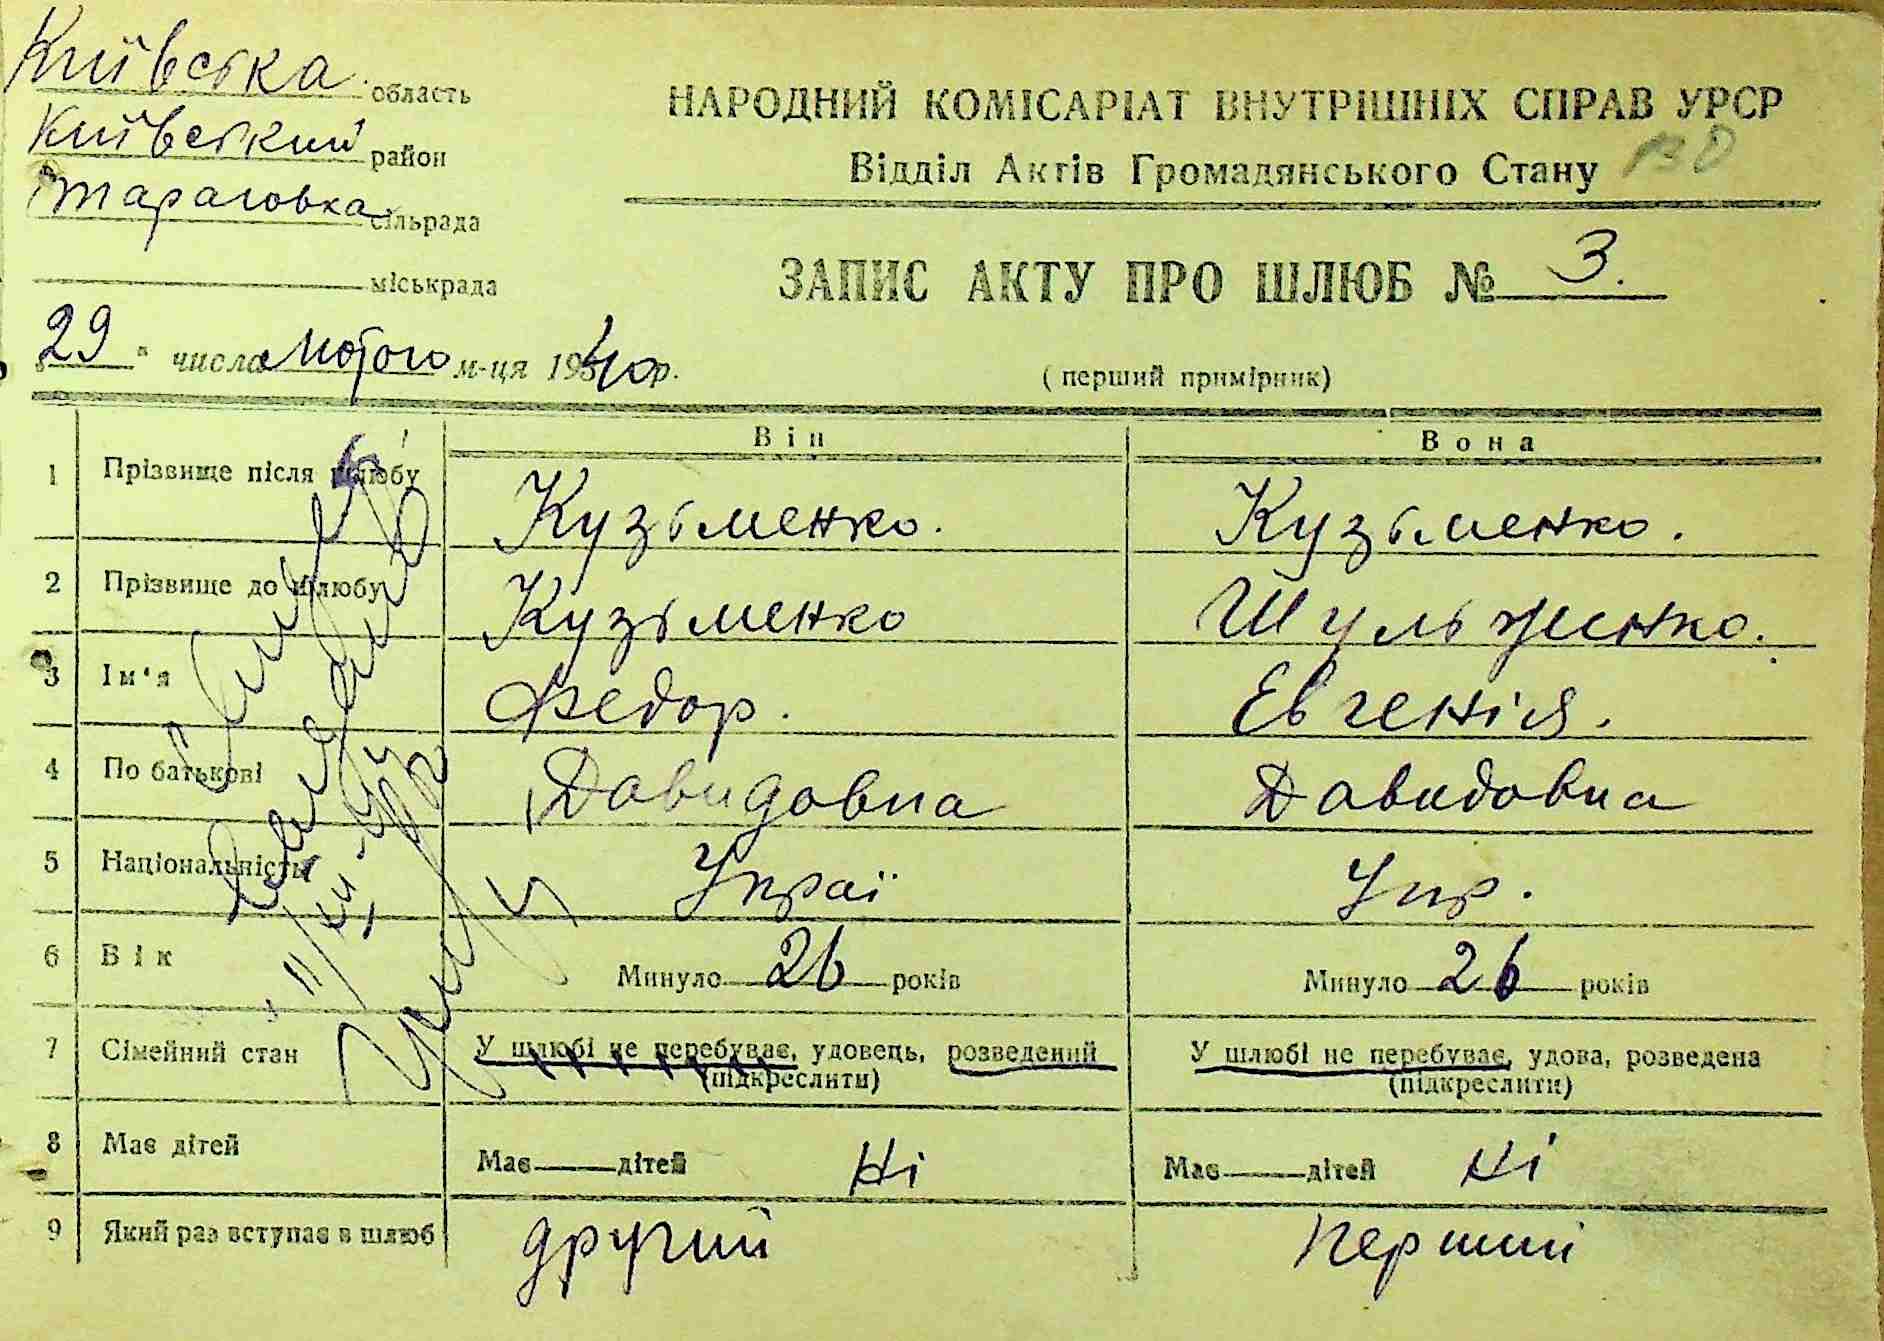 Київська область
Київський район
Тарасовка сільрада
міськрада
НАРОДНИЙ КОМІСАРІАТ ВНУТРІШНІХ СПРАВ УРСР
Відділ Актів Громадянського Стану
ЗАПИС АКТУ ПРО ШЛЮБ № 3.
29 " числа Лютого м-ця 1940 р.
(перший примірник)
Він Вона
1 Прізвище після шлюбу Кузьменко. Кузьменко.
2 Прізвище до шлюбу Кузьменко Шульженко.
3 Ім'я Федор. Евгенія.
4 По батькові Давидовна Давидовна
5 Національність Украї Укр.
6 Вік Минуло 26 років Минуло 26 років
7 Сімейний стан У шлюбі не перебуває, удовець, розведений У шлюбі не перебуває, удова, розведена
(підкреслити) (підкреслити)
8 Має дітей Має дітей Ні Має дітей Ні
9 Який раз вступає в шлюб другий Перший